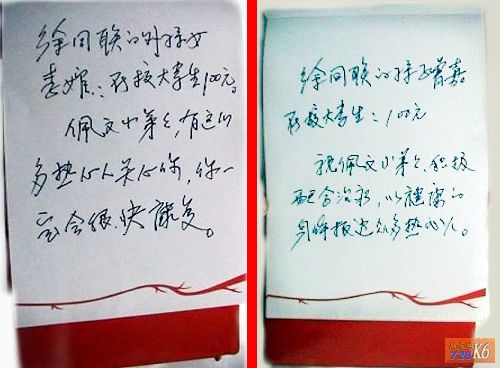 徐同联的外孙女
李妮：在校大学生100元。
佩文小弟弟，有这么
多热心人关心你，你一
定会很快康复。
徐同联的孙子曾嘉：
在校大学生：100元
祝佩文小弟弟，积极
配合治疗，以健康的
身体报达众多热心人。
728K6